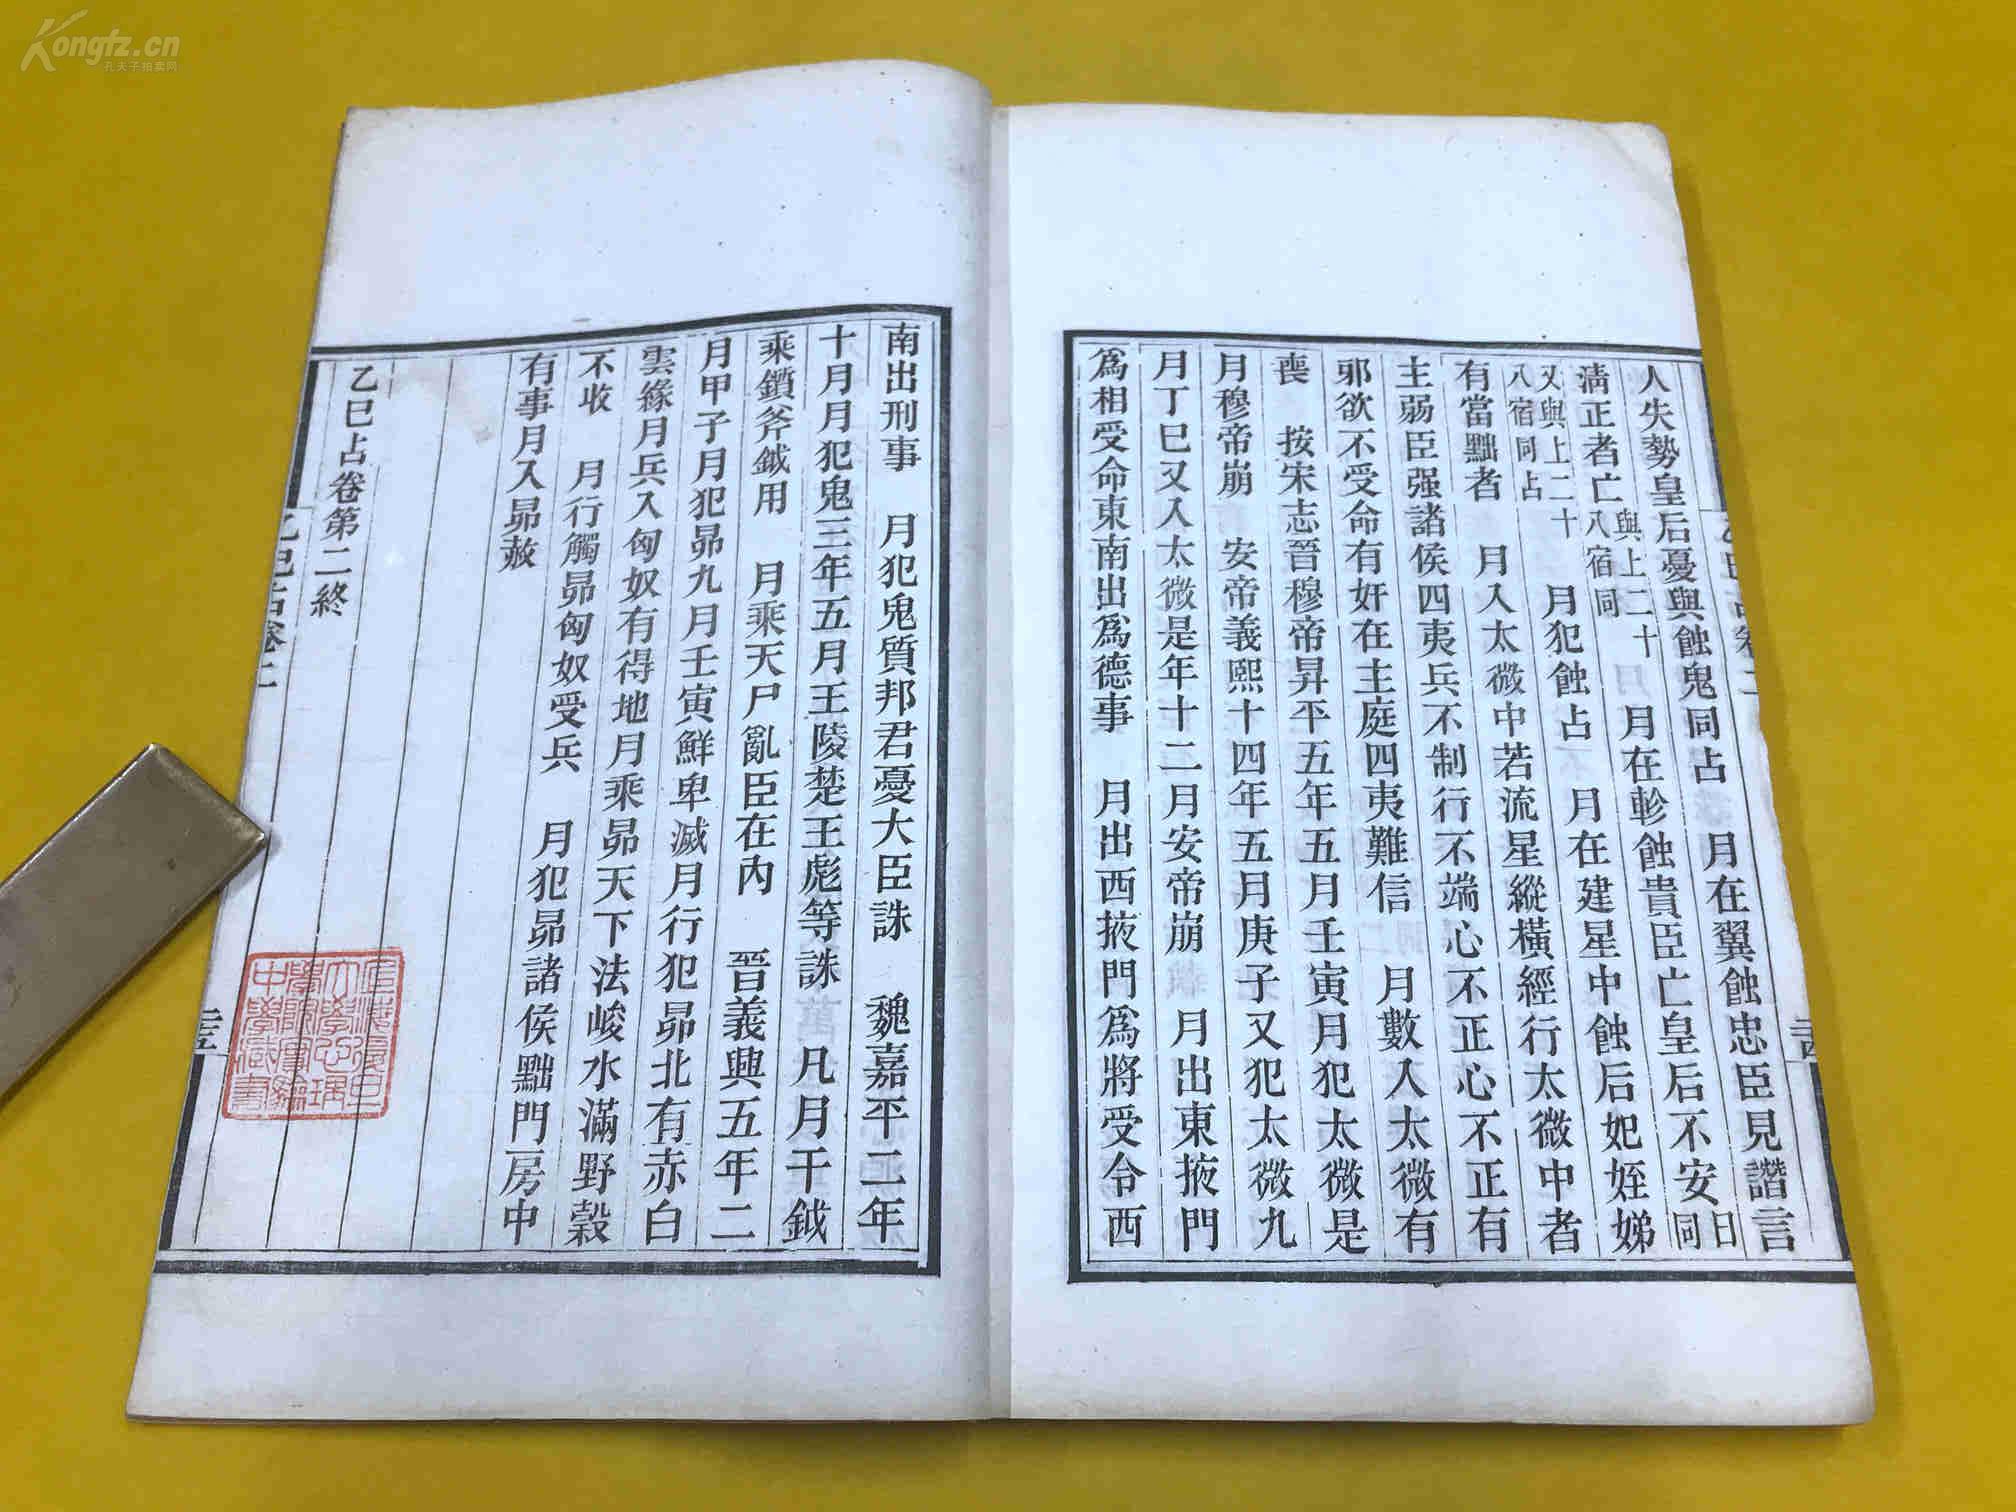 人失勢皇后憂與蝕鬼同占　月在翼蝕忠臣見譖言
清正者亡與上二十八宿同　月在軫蝕貴臣亡皇后不安日同
又與上二十八宿同占　月犯蝕占　月在建星中蝕后妃姪娣
有當黜者　月入太微中若流星縱橫經行太微中者
主弱臣强諸侯四夷兵不制行不端心不正心不正有
邪欲不受命有奸在主庭四夷難信　月數入太微有
喪　按宋志晉穆帝昇平五年五月壬寅月犯太微是
月穆帝崩　安帝義熙十四年五月庚子又犯太微九
月丁巳又入太微是年十二月安帝崩　月出東掖門
爲相受命東南出爲德事　月出西掖門爲將受令西
南出刑事　月犯鬼質邦君憂大臣誅　魏嘉平二年
十月月犯鬼三年五月王陵楚王彪等誅　凡月干鉞
乘鑕斧鉞用　月乘天尸亂臣在內　晉義興五年二
月甲子月犯昴九月壬寅鮮卑滅月行犯昴北有赤白
雲緣月兵入匈奴有得地月乘昴天下法峻水滿野穀
不收　月行觸昴匈奴受兵　月犯昴諸侯黜門房中
有事月入昴赦
乙巳占卷第二終
乙巳占卷二
二五
Kongfz.cn
孔夫子拍卖网